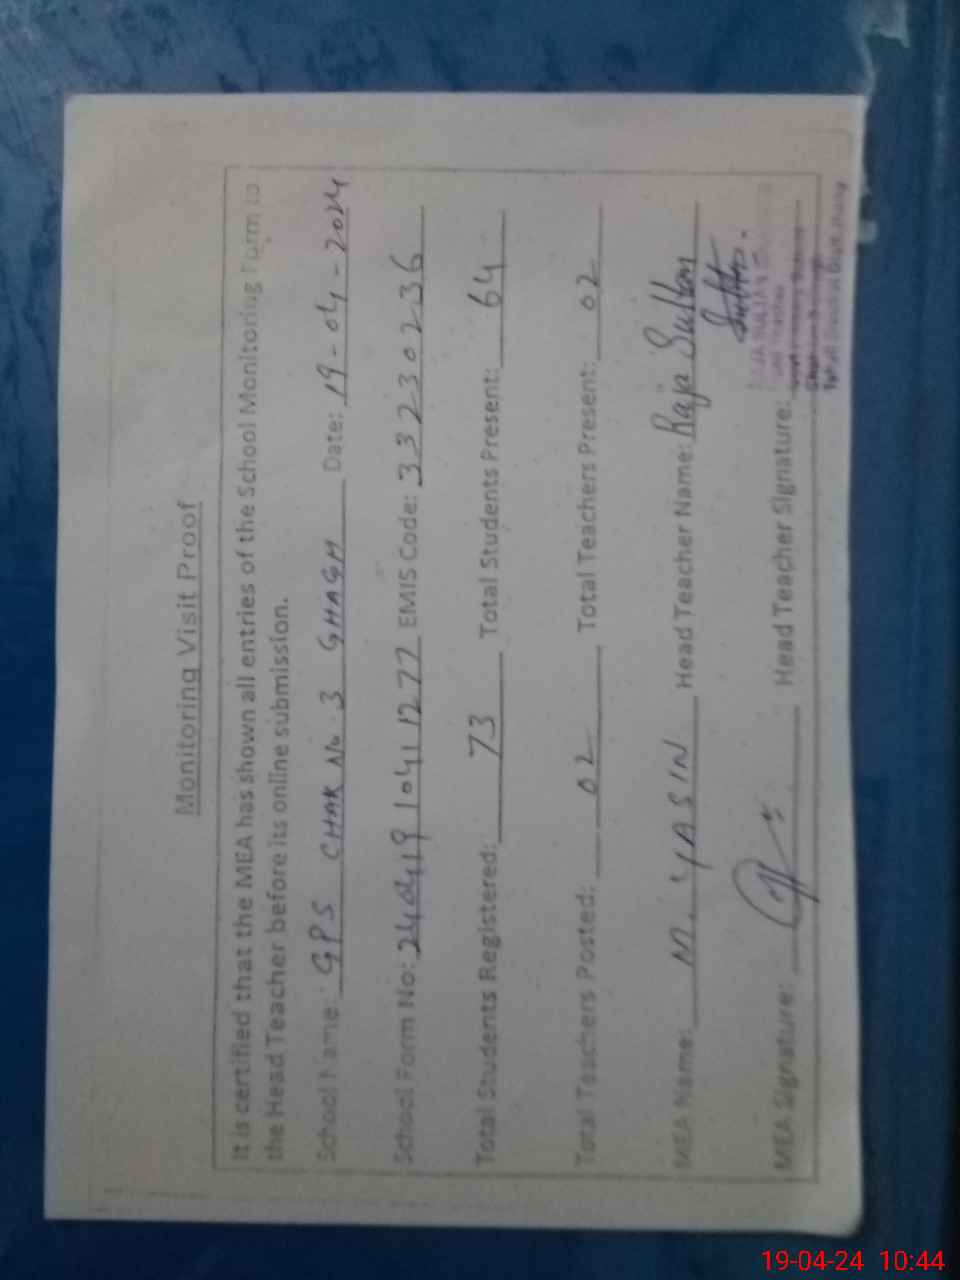 Monitoring Visit Proof
It is certified that the MEA has shown all entries of the School Monitoring Form to
the Head Teacher before its online submission.
School Name: GPS CHAK No. 3 GHAGH Date: 19-04-2024
School Form No: 24041910411277 EMIS Code: 33230236
Total Students Registered: 73 Total Students Present: 64
Total Teachers Posted: 02 Total Teachers Present: 02
MEA Name: M. YASIN Head Teacher Name: Raja Sultan
MEA Signature: Head Teacher Signature:
19-04-24 10:44